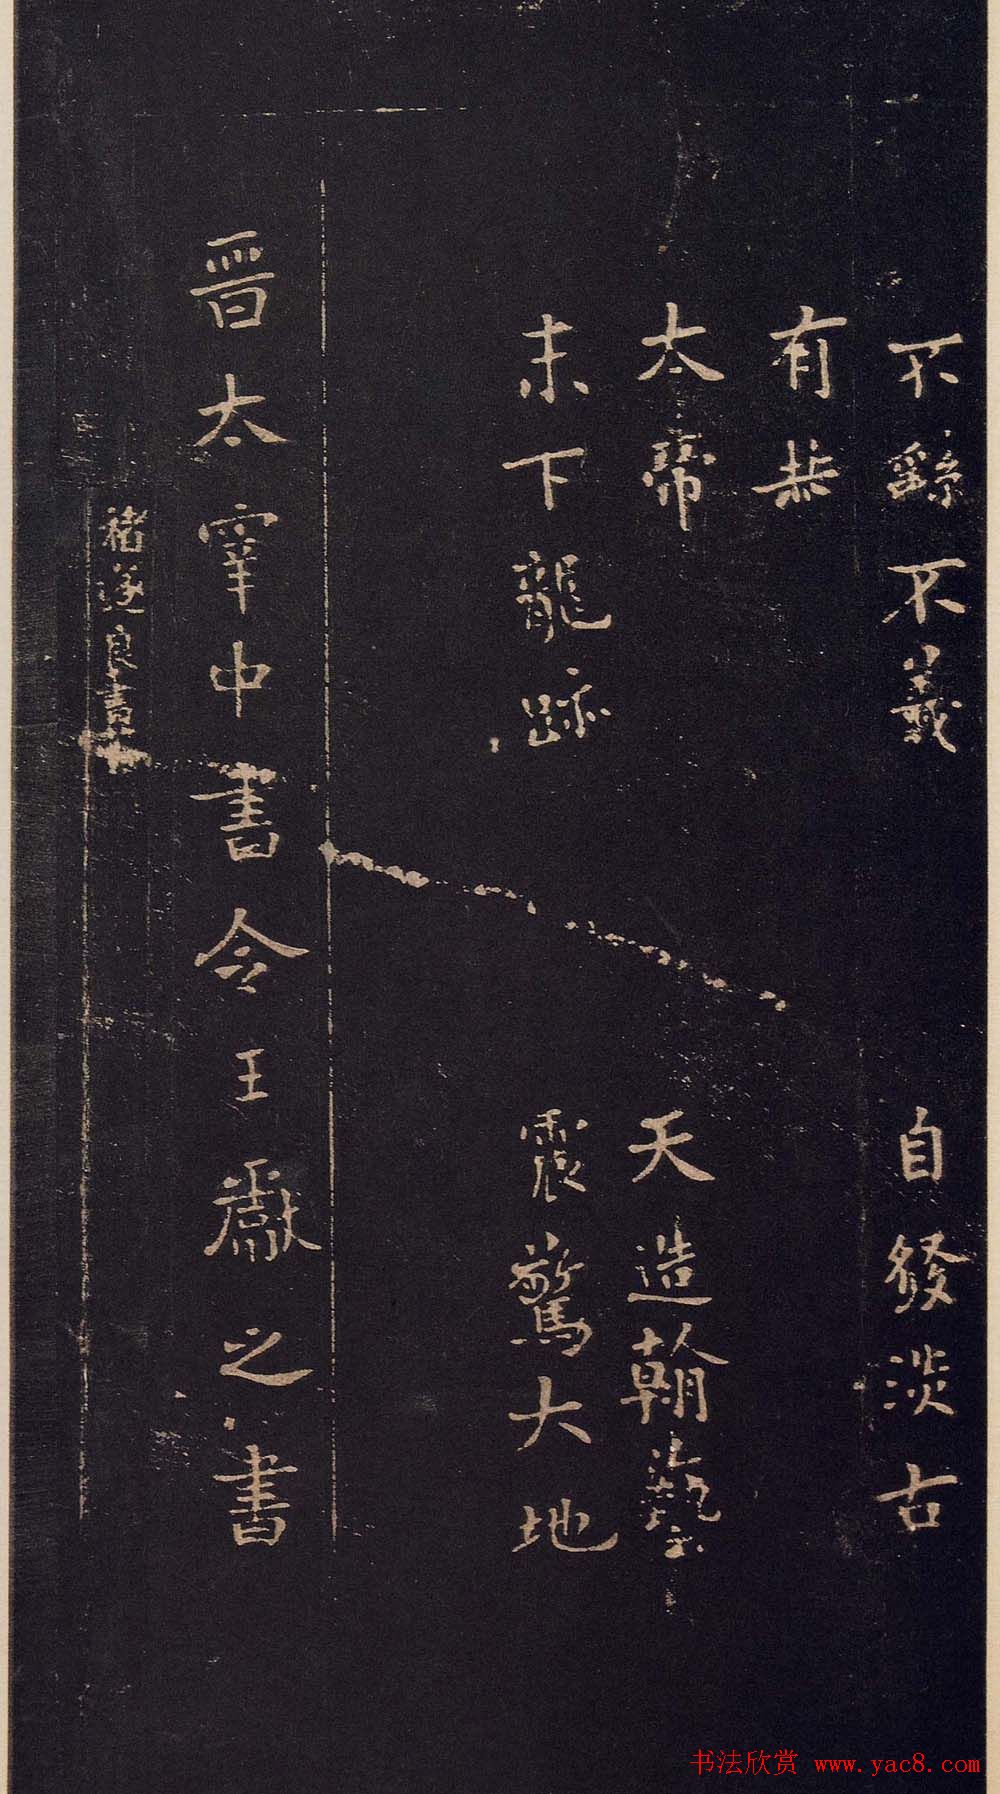 不繇不羲 自發淡古
有赫
太帝 天造翰藝
末下龍跡 震驚大地
晉太宰中書令王獻之書
褚遂良書
书法欣赏 www.yac8.com